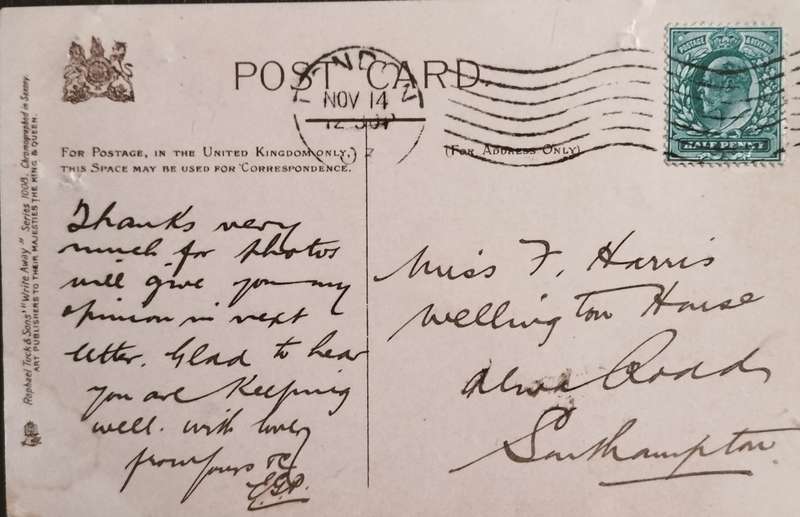 POST CARD.
NOV 14
12.30P
POSTAGE & REVENUE
HALF PENNY
FOR POSTAGE, IN THE UNITED KINGDOM ONLY,
THIS SPACE MAY BE USED FOR CORRESPONDENCE.
(FOR ADDRESS ONLY)
Raphael Tuck & Sons' "Write Away" Series 1008. Chromographed in Saxony.
ART PUBLISHERS TO THEIR MAJESTIES THE KING & QUEEN.
Thanks very
much for photos
will give you my
opinion in next
letter. Glad to hear
you are keeping
well. with love
from yours
Miss F. Harris
Wellington House
Road
Southampton